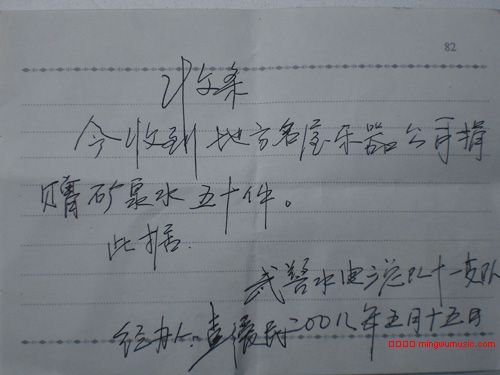 82
收条
今收到地方名屋乐器公司捐
赠矿泉水五十件。
此据.
武警水电总队十一支队
经办人: 2008年五月十五日
mingwumusic.com